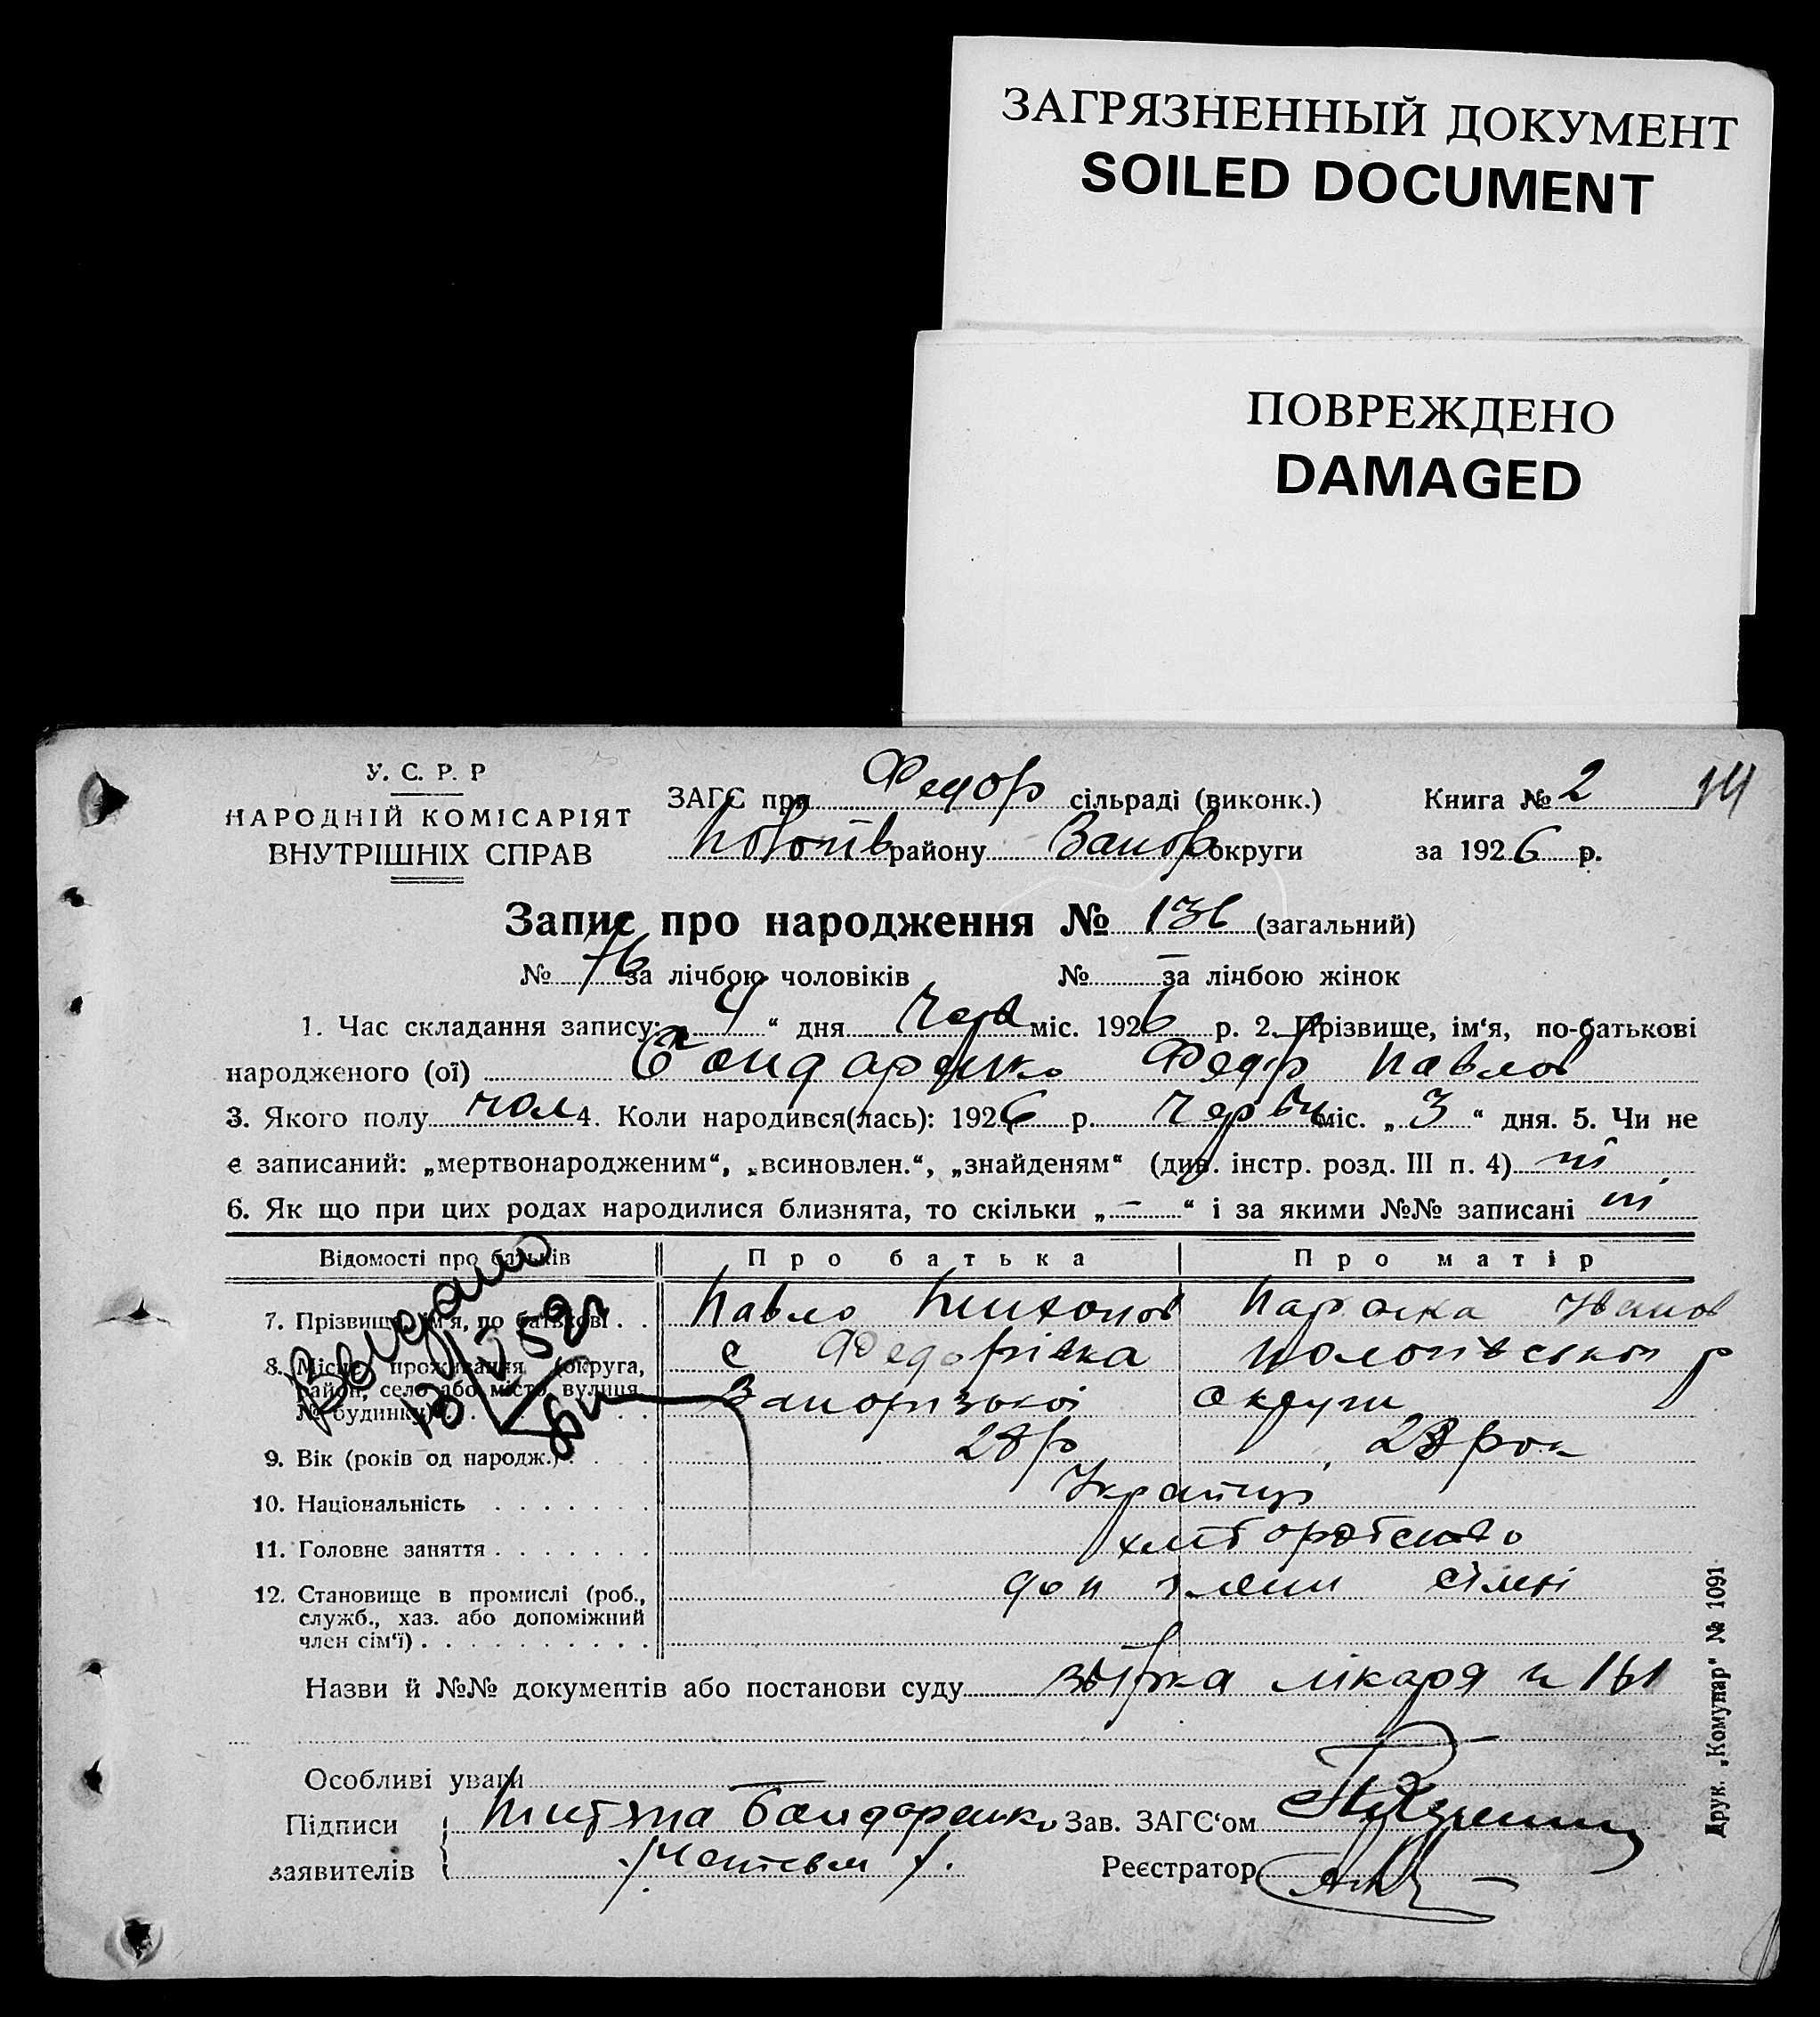 ЗАГРЯЗНЕННЫЙ ДОКУМЕНТ
SOILED DOCUMENT
ПОВРЕЖДЕНО
DAMAGED
У. С. Р. Р
НАРОДНІЙ КОМІСАРІЯТ
ВНУТРІШНІХ СПРАВ
ЗАГС при Федор сільраді (виконк.) Книга № 2 14
району Запор округи за 1926 р.
Запис про народження № 136 (загальний)
№ 76 за лічбою чоловіків № – за лічбою жінок
1. Час складання запису: „4“ дня Черв міс. 1926 р. 2. Прізвище, ім‘я, по-батькові
народженого (ої) Бондаренко Федір Павлов
3. Якого полу чол 4. Коли народився(лась): 1926 р. Червн міс. „3“ дня. 5. Чи не
є записаний: „мертвонародженим“, „всиновлен.“, „знайденям“ (див. інстр. розд. III п. 4) ні
6. Як що при цих родах народилися близнята, то скільки „–“ і за якими №№ записані ні
Відомості про батьків Про батька Про матір
7. Прізвище, ім‘я, по батькові Павло Параска Иванов
8. Місце проживання (округа, район, село або місто, вулиця, № будинку) с Федорівка Пологівської р
Запоризької округи
9. Вік (років од народж.) 28 р 28 рок
10. Національність Українці
11. Головне заняття хліборобство
12. Становище в промислі (роб.,
служб., хаз. або допоміжний
член сім‘ї) доп члени сімї
Назви й №№ документів або постанови суду лікаря
Особливі уваги
Підписи Бондаренко Зав. ЗАГС‘ом
заявителів Реєстратор
Друк. „Комунар“ № 1091